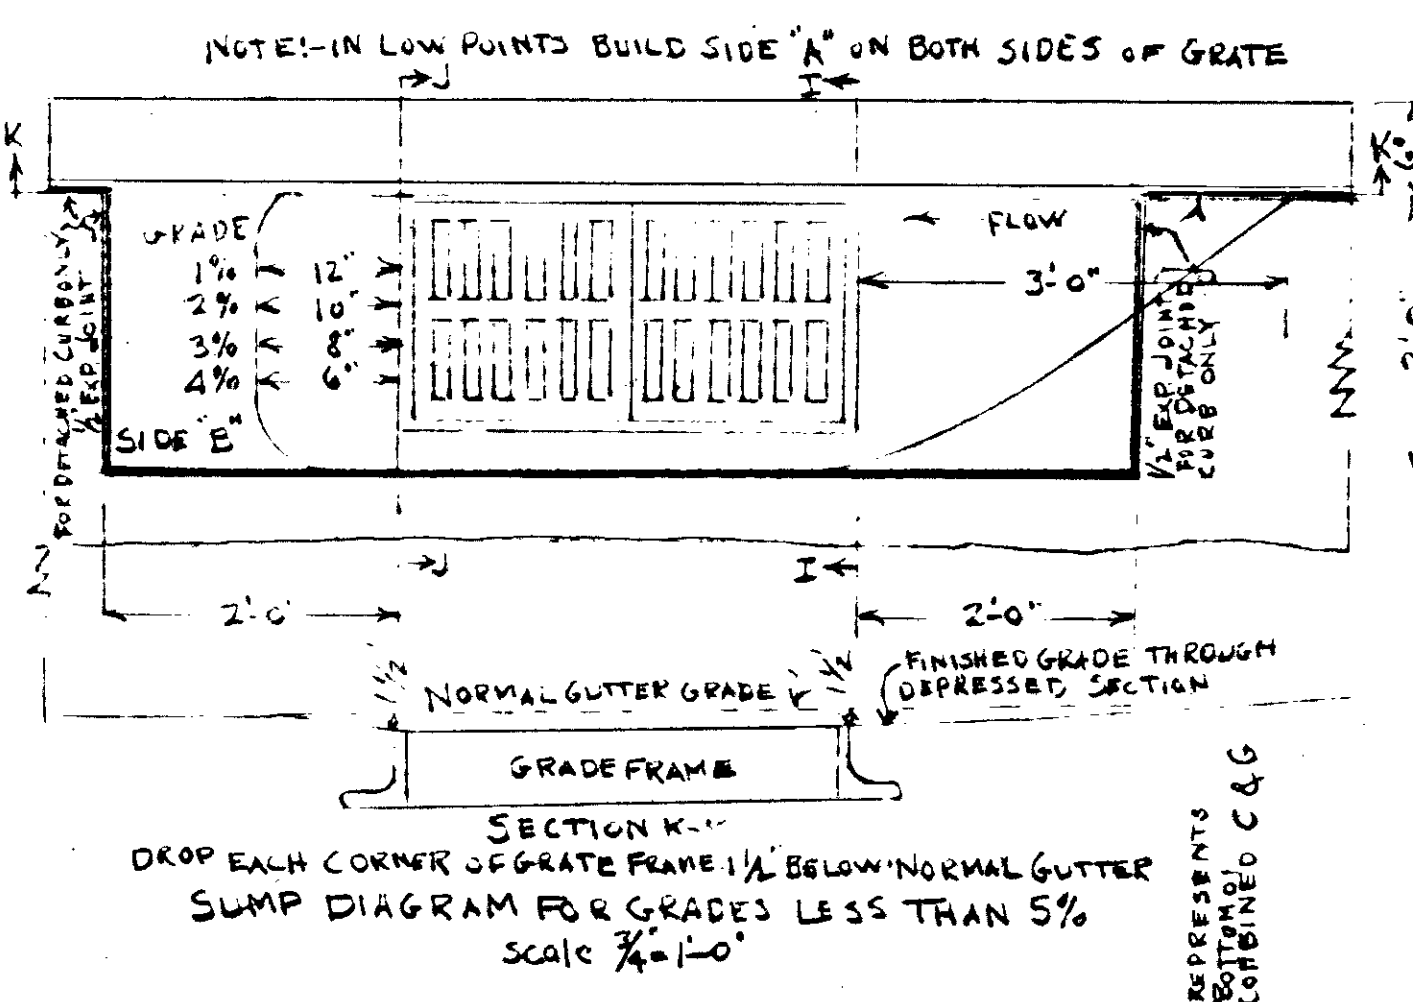 NOTE!-IN LOW POINTS BUILD SIDE "A" ON BOTH SIDES OF GRATE
J
I
K
K
6"
GRADE
FLOW
1% 12"
2% 10"
3% 8"
4% 6"
3'-0"
SIDE "B"
FOR DETACHED CURB ONLY
1/2" EXP JOINT
1/2" EXP. JOINT
FOR DETACHED
CURB ONLY
J
I
2'-0"
2'-0"
1 1/2
1 1/2
NORMAL GUTTER GRADE
FINISHED GRADE THROUGH
DEPRESSED SECTION
GRADE FRAME
SECTION K-
DROP EACH CORNER OF GRATE FRAME 1 1/2" BELOW NORMAL GUTTER
SUMP DIAGRAM FOR GRADES LESS THAN 5%
Scale 3/4"=1'-0"
REPRESENTS
BOTTOM OF
COMBINED C & G